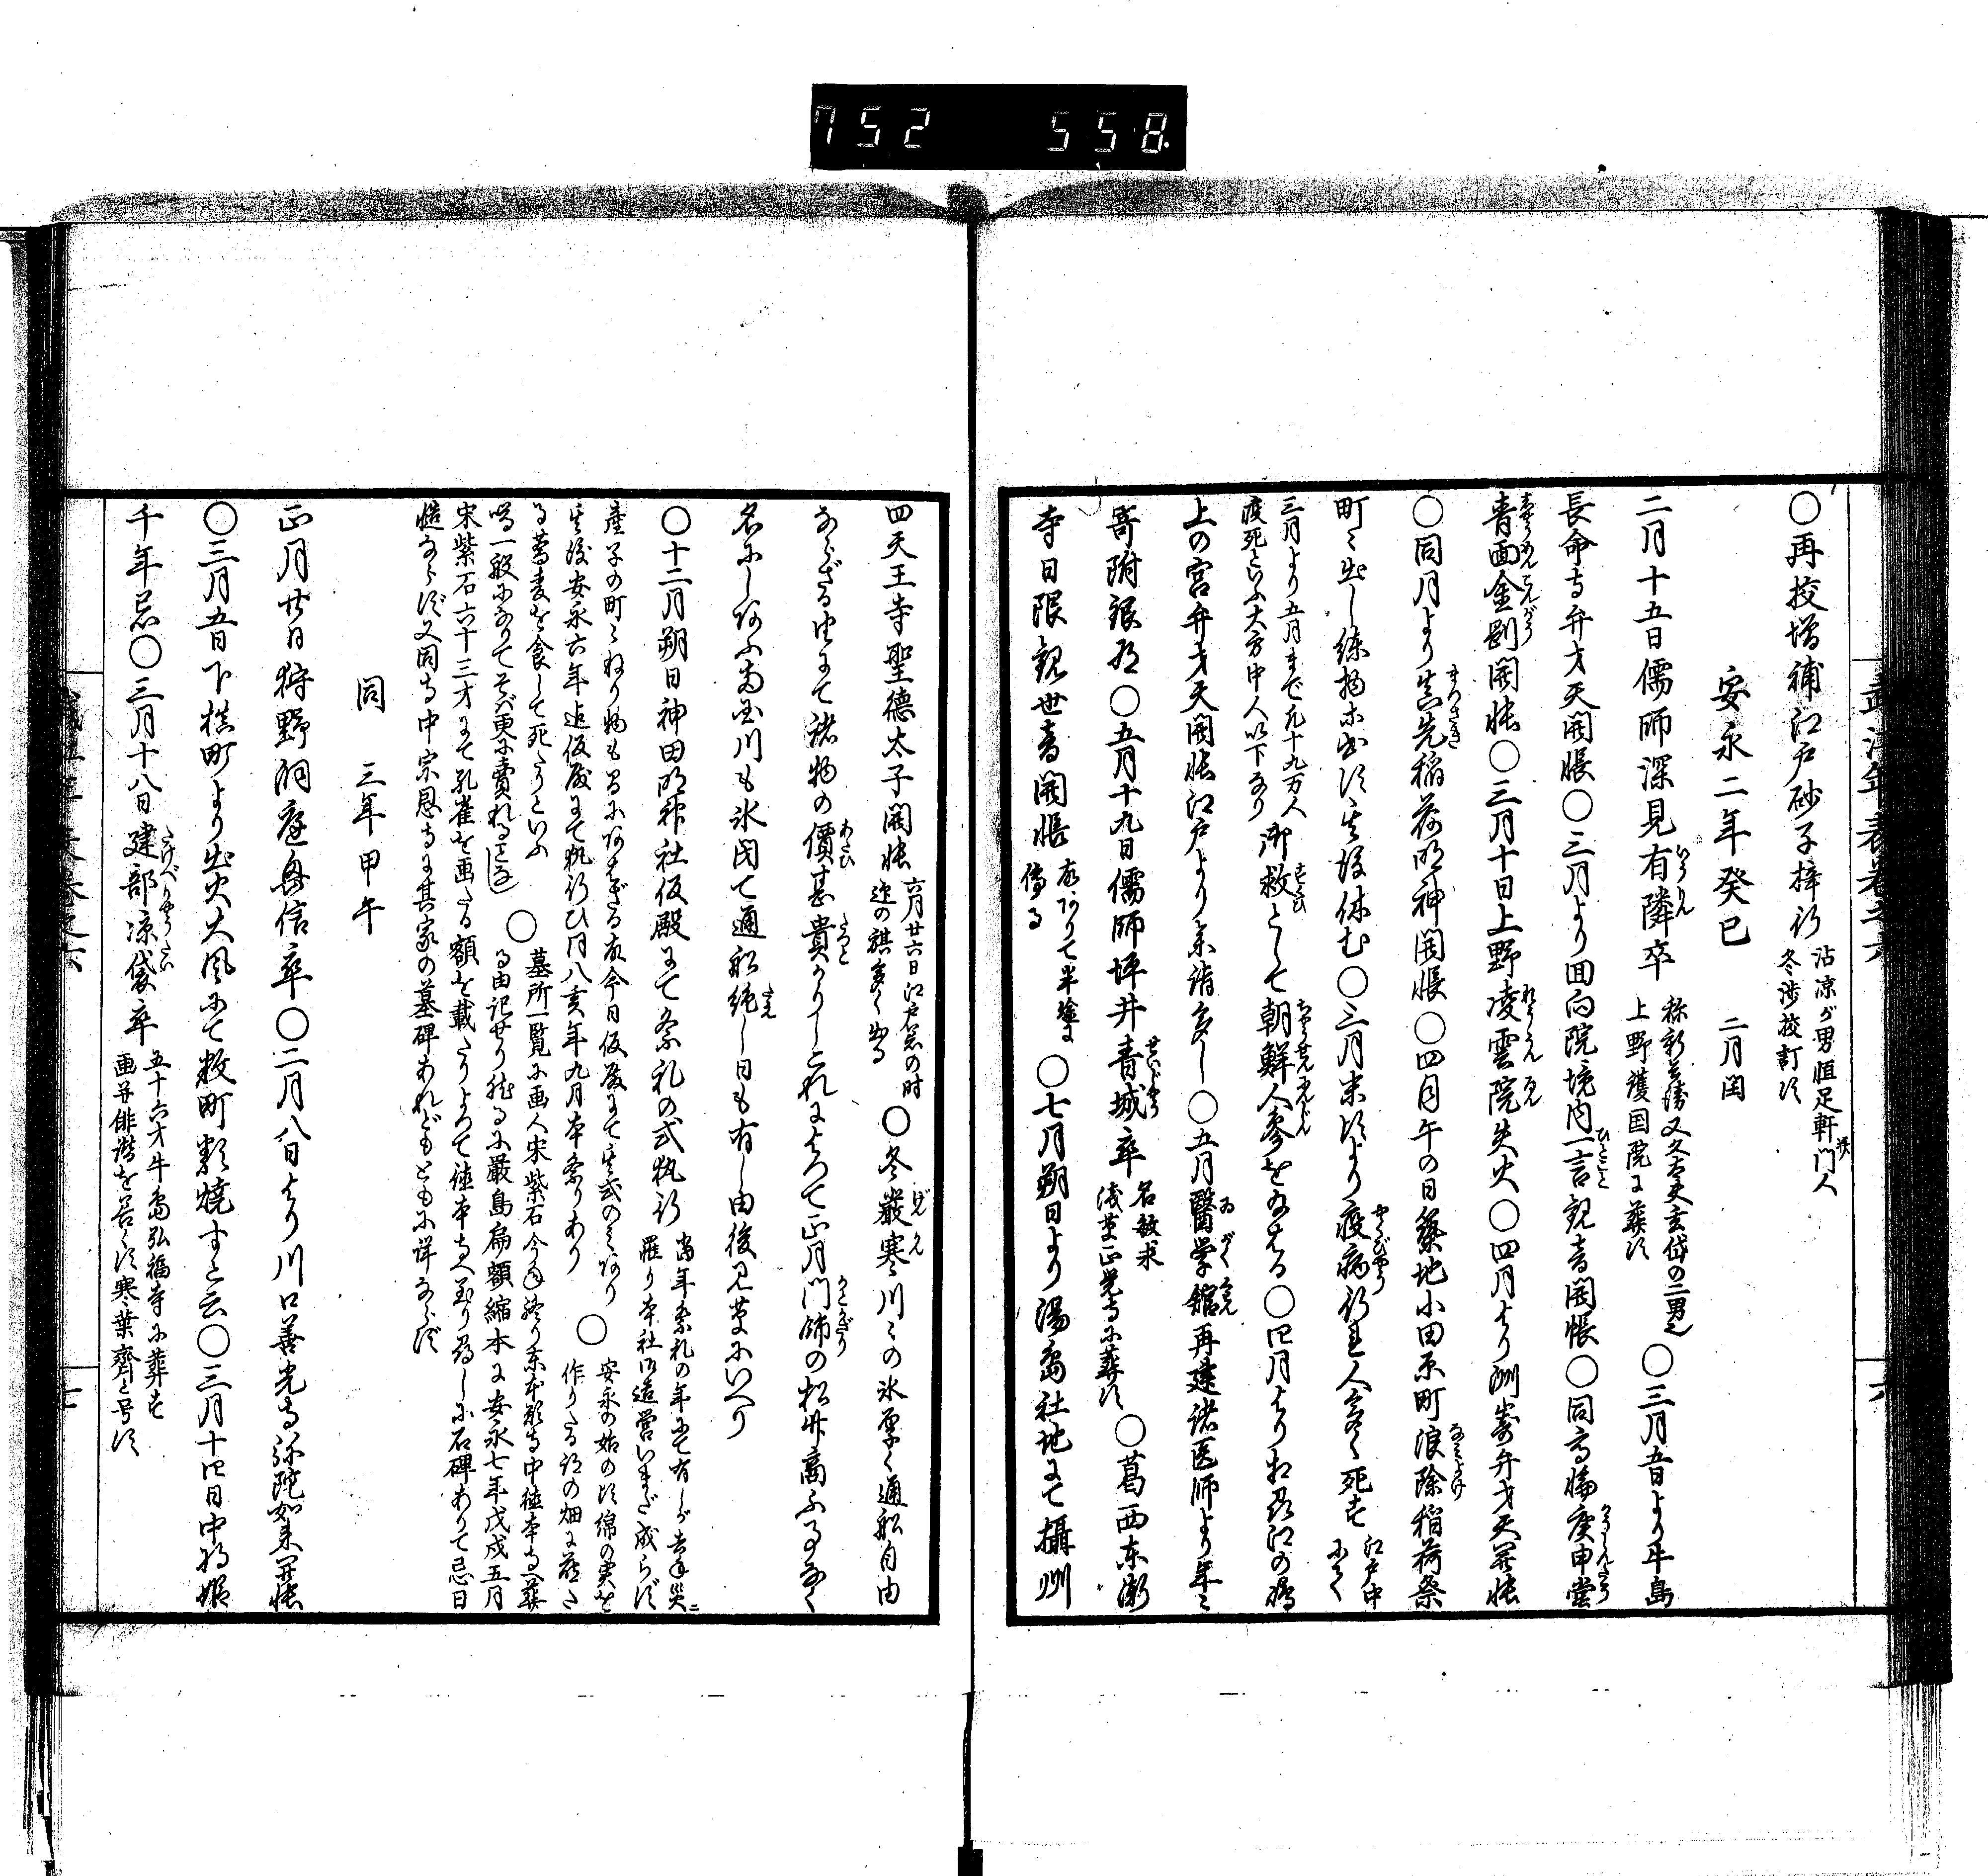 752 558
○再挍増補江戸砂子梓行 沾凉が男恒足軒門人冬渉挍訂す
安永二年癸巳 二月閏
二月十五日儒師深見有隣卒 称新兵衛又久大夫玄岱の二男也上野護国院に葬す ○三月五日より牛島
長命寺弁才天開帳○三月より回向院境内一言観音開帳○同高輪庚申堂
青面金剛開帳○三月十日上野凌雲院失火○四月より洲崎弁才天開帳
○同月より真先稲荷明神開帳○四月午の日築地小田原町浪除稲荷祭
町々出し練物等出す其後休む○三月末頃より疫病行れ人多く死す 江戸中にて
三月より五月まで凡十九万人疫死といふ大方中人以下なり 御救として朝鮮人参を給はる○四月より相州江の島
上の宮弁才天開帳江戸より参詣多し○五月醫学舘再建諸医師より年々
寄附銀有○五月十九日儒師坪井青城卒 名敏求浅草正覚寺に葬す ○葛西東漸
寺日限観世音開帳 ○七月朔日より湯島社地にて攝州
四天王寺聖徳太子開帳 六月廿六日江戸着の時迎の旗多く出る ○冬嚴寒川々の氷厚く通船自由
ならざる由にて諸物の價甚貴かりしこれによつて正月門飾の松竹商ふ事なく
名にしおふ両国川も氷閉て通船絶し日も有し由後見草にいへり
○十二月朔日神田明神社仮殿にて祭礼の式執行 当年祭礼の年にて有しが去年災ニ罹り本社御造営いまだ成らず
産子の町々ねり物も 今日仮殿にて其式のみあり
其後安永六年迄仮殿にて執行ひ同八亥年九月本祭りあり ○ 安永の始の頃綿の実を作りたる跡の畑に蒔た
る蕎麦を食して死たりといふ
噂一般になりてそば更に賣れず ○ 墓所一覧に画人宋紫石
る由記せり然るに嚴島扁額縮本に安永七年戊戌五月
宋紫石六十三才にて孔雀を画たる額を載たりよつて 石碑ありて忌日
慥ならず又同寺中宗恩寺に其家の墓碑あれどもともに詳ならず
同 三年甲午
正月廿日狩野洞庭興信卒○二月八日より川口善光寺弥陀如来開帳
○三月五日下槙町より出火大風にて数町類焼すと云○三月十四日中将姫
千年忌○三月十八日建部凉袋卒 五十六才牛島弘福寺に葬す画并俳諧を善くす寒葉齋と号す